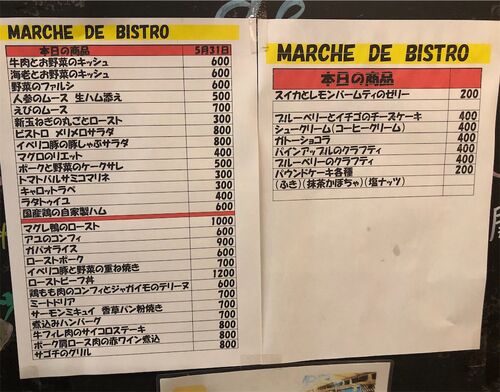 MARCHE DE BISTRO
本日の商品 5月31日
牛肉とお野菜のキッシュ 600
海老とお野菜のキッシュ 600
野菜のファルシ 600
人参のムース 生ハム添え 500
えびのムース 700
新玉ねぎの丸ごとロースト 300
ビストロ メリメロサラダ 800
イベリコ豚の豚しゃぶサラダ 800
マグロのリエット 400
ポークと野菜のケークサレ 500
トマトバルサミコマリネ 300
キャロットラペ 300
ラタトゥイユ 400
国産鶏の自家製ハム 600
マグレ鴨のロースト 1000
アユのコンフィ 600
ガパオライス 900
ローストポーク 600
イベリコ豚と野菜の重ね焼き 700
ローストビーフ丼 1200
鶏もも肉のコンフィとジャガイモのテリーヌ 600
ミートドリア 700
サーモンミキュイ 香草パン粉焼き 700
煮込みハンバーグ 700
牛フィレ肉のサイコロステーキ 800
ポーク肩ロース肉の赤ワイン煮込 800
サゴチのグリル 800
MARCHE DE BISTRO
本日の商品
スイカとレモンバームティのゼリー 200
ブルーベリーとイチゴのチーズケーキ 400
シュークリーム(コーヒークリーム) 400
ガトーショコラ 400
パインアップルのクラフティ 400
ブルーベリーのクラフティ 400
パウンドケーキ各種 200
(ふき)(抹茶かぼちゃ)(塩ナッツ)